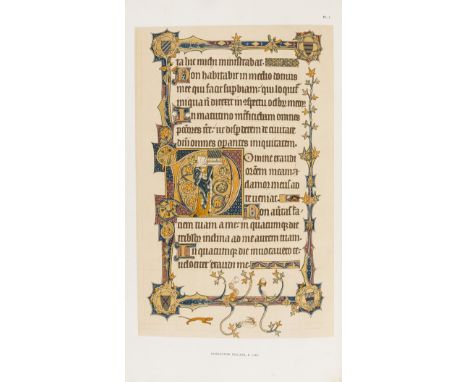 Pl. 1
ta hic michi ministrabat.
Non habitabit in medio domus
mee qui facit supbiam: qui loquit
iniqua nō direxit in ōspectu oculoꝝ meoꝝ
In matutino inficiebam omnes
pctōres tre: ut dispderem de civitate
dni omnes opantes iniquitatem.
Domine exaudi
orōem meam: et
clamor meus ad
te veniat.
Non avtas fa
ciem tuam a me: in quacumqꝫ die
tribulor inclina ad me aurem tuam.
In quacumqꝫ die invocavero te:
velociter exaudi me.